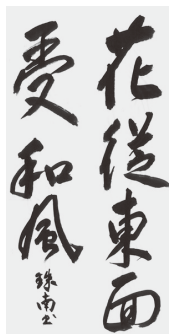 花從東面
受和風
銖南書